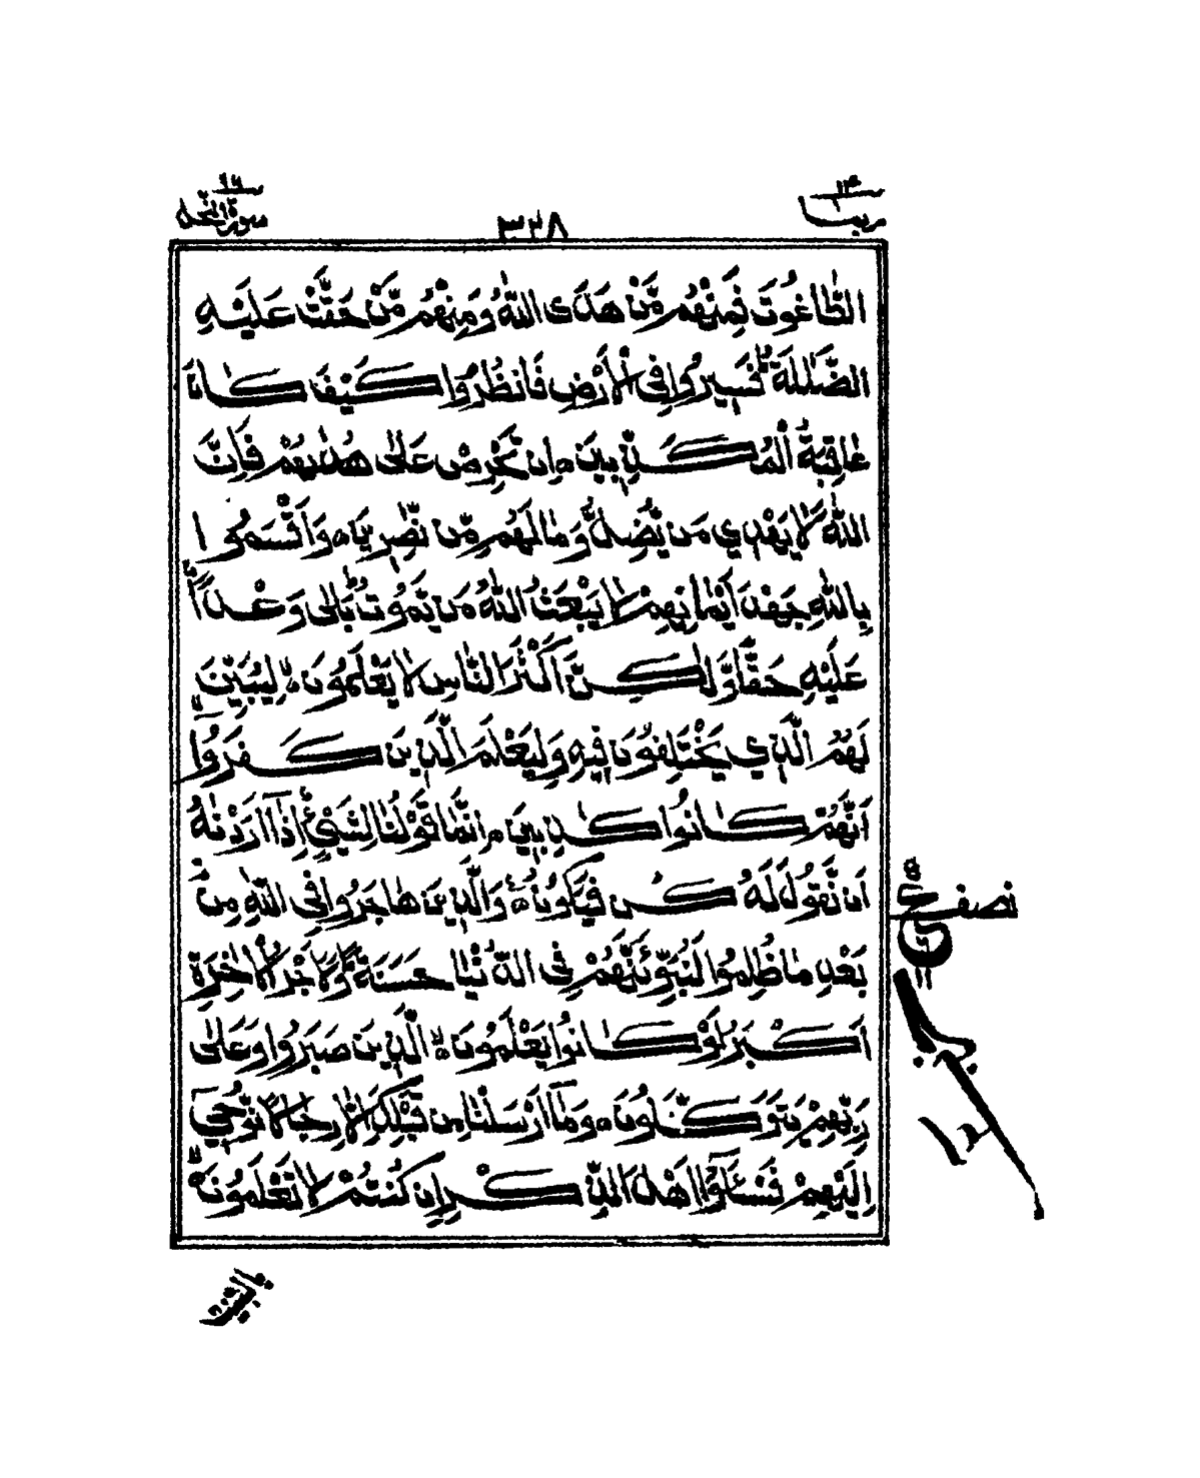 ربما ١٤
٣٣٨
سورة النحل ١٦
الطَّاغُوتَ فَمِنْهُمْ مَّنْ هَدَى اللّٰهُ وَمِنْهُمْ مَّنْ حَقَّتْ عَلَيْهِ
الضَّلٰلَةُ فَسِيرُوا فِي الْأَرْضِ فَانظُرُوا كَيْفَ كَانَ
عَاقِبَةُ الْمُكَذِّبِينَ ۝ اِن تَحْرِصْ عَلٰى هُدٰىهُمْ فَاِنَّ
اللّٰهَ لَا يَهْدِي مَن يُّضِلُّ وَمَا لَهُم مِّن نّٰصِرِينَ ۝ وَاَقْسَمُوا
بِاللّٰهِ جَهْدَ اَيْمَانِهِمْ لَا يَبْعَثُ اللّٰهُ مَن يَّمُوتُ بَلٰى وَعْدًا
عَلَيْهِ حَقًّا وَّلٰكِنَّ اَكْثَرَ النَّاسِ لَا يَعْلَمُونَ ۝ لِيُبَيِّنَ
لَهُمُ الَّذِي يَخْتَلِفُونَ فِيهِ وَلِيَعْلَمَ الَّذِينَ كَفَرُوا
اَنَّهُمْ كَانُوا كٰذِبِينَ ۝ اِنَّمَا قَوْلُنَا لِشَيْءٍ اِذَا اَرَدْنٰهُ
اَن نَّقُولَ لَهُ كُن فَيَكُونُ ۝ وَالَّذِينَ هَاجَرُوا فِي اللّٰهِ مِنْ
بَعْدِ مَا ظُلِمُوا لَنُبَوِّئَنَّهُمْ فِي الدُّنْيَا حَسَنَةً وَلَاَجْرُ الْاٰخِرَةِ
اَكْبَرُ لَوْ كَانُوا يَعْلَمُونَ ۝ الَّذِينَ صَبَرُوا وَعَلٰى
رَبِّهِمْ يَتَوَكَّلُونَ ۝ وَمَا اَرْسَلْنَا مِن قَبْلِكَ اِلَّا رِجَالًا نُّوحِي
اِلَيْهِمْ فَسْـَٔلُوا اَهْلَ الذِّكْرِ اِن كُنتُمْ لَا تَعْلَمُونَ ۝
نصف
بالبينت